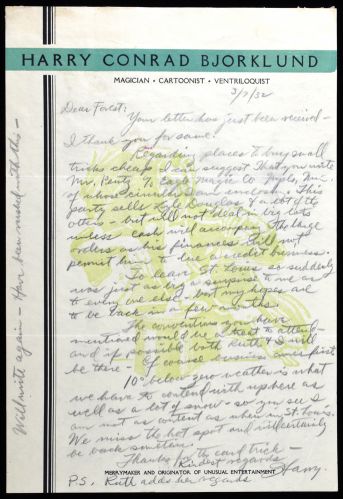 HARRY CONRAD BJORKLUND
MAGICIAN • CARTOONIST • VENTRILOQUIST
3/7/32
Dear Forest:
Your letter has just been received –
I thank you for same.
Regarding places to buy small
tricks cheap I can suggest that you write
Mr. Rentz, Eagle Magic Co. Mpls, Minn.
of whose circular I am enclosing. This
party sells Lyle Douglas & a lot of the
others – but will not deal in big lots
unless cash will accompany the large
orders as his finances will not
permit him to do a credit business.
To leave St. Louis so suddenly
was just as big a surprise to me as
to every one else – but my hopes are
to be back in a few months.
The conventions you have
mentioned would be a treat to attend –
and if possible both Ruth & I will
be there – Of course business comes first.
10° below zero weather is what
we have to contend with up here as
well as a lot of snow – so you see I
am not as content as when in St. Louis.
We miss the hot spot and will certainly
be back sometime.
Thanks for the card trick –
Kindest regards
Harry.
MERRYMAKER AND ORIGINATOR OF UNUSUAL ENTERTAINMENT
P.S. Ruth adds her regards
Will write again – Have been rushed with this –